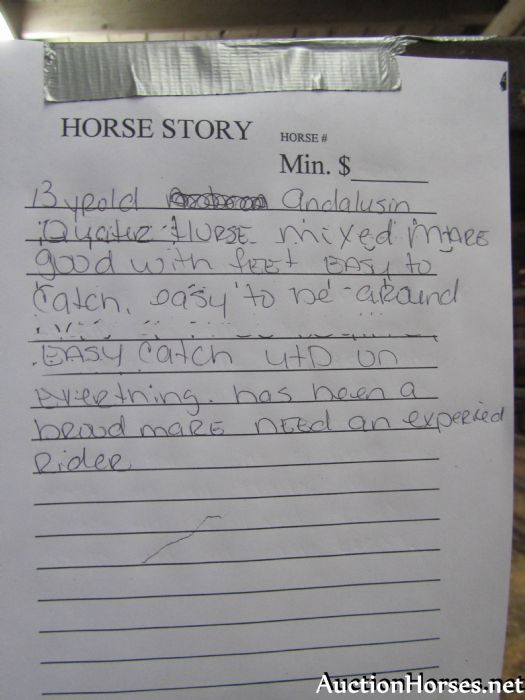 HORSE STORY
HORSE #
Min. $
13 yrold Andalusin
Quater HORSE mixed MARE
good with FEET EASY to
catch. easy to be around
EASY catch UTD on
everthing. has been a
broud mare NEED an experied
Rider
AuctionHorses.net